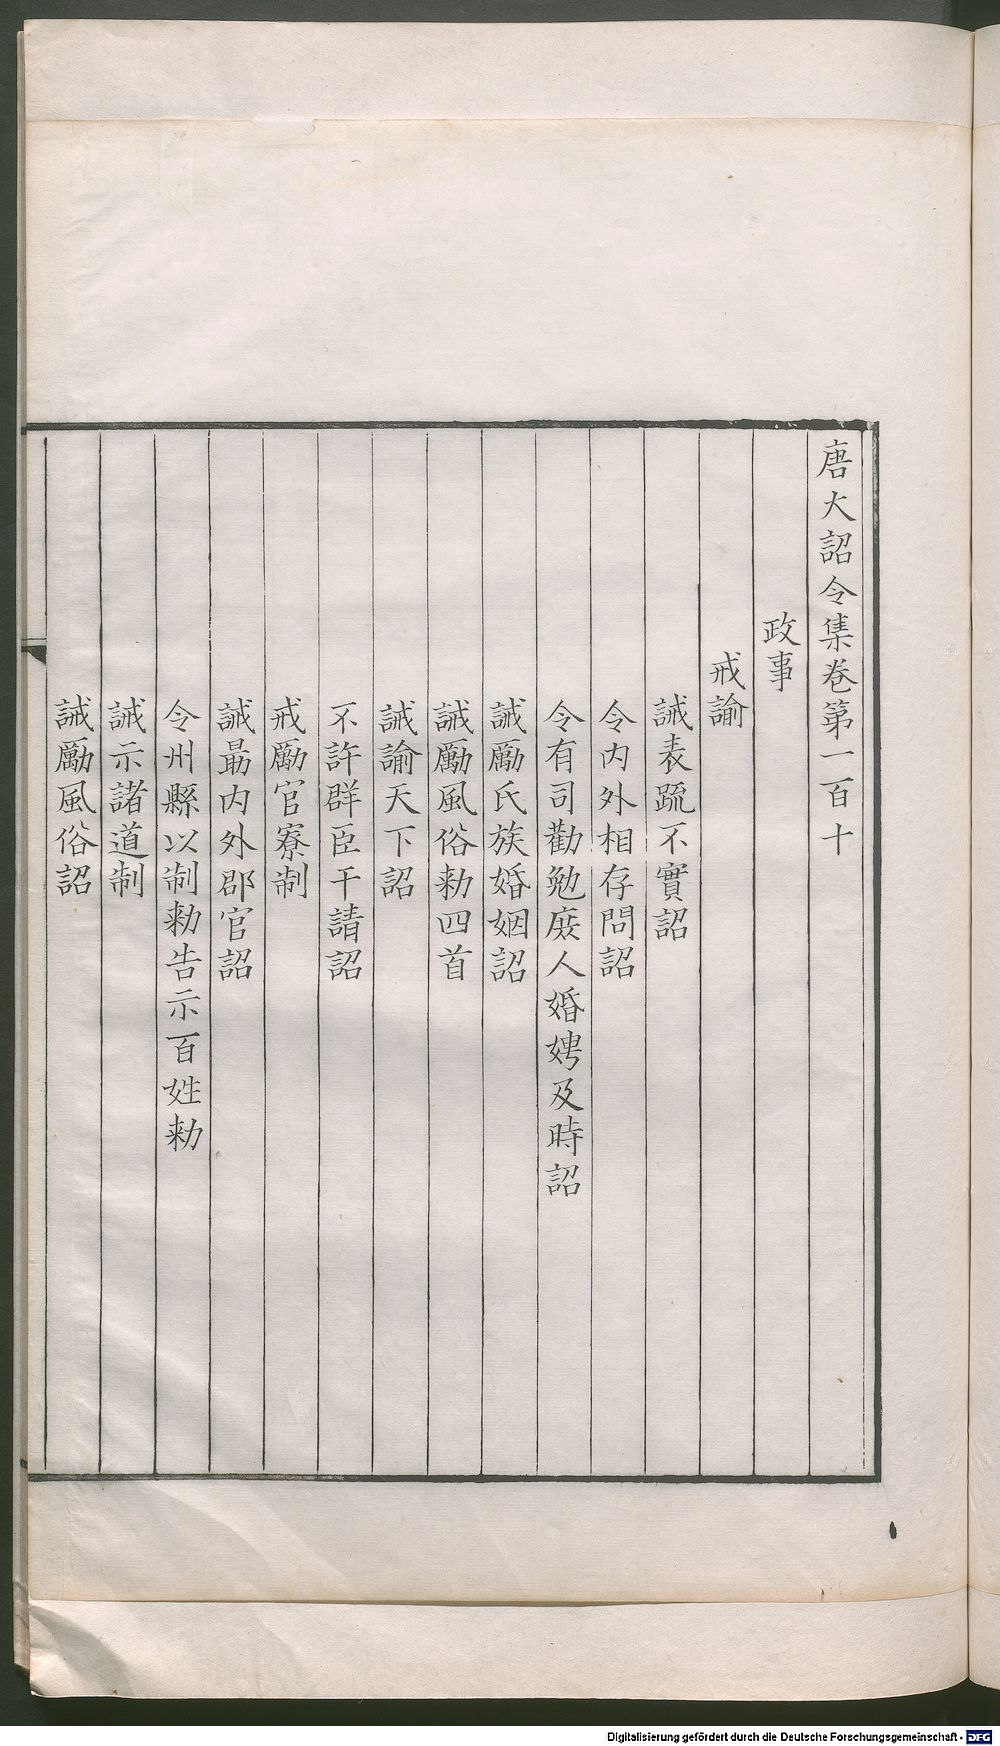 唐大詔令集卷第一百十
政事
戒諭
誡表䟽不實詔
令内外相存問詔
令有司勸勉庻人婚娉及時詔
誡勵氏族婚姻詔
誡勵風俗勑四首
誡諭天下詔
不許群臣干請詔
戒勵官寮制
誡勗内外郡官詔
令州縣以制勑告示百姓勑
誡示諸道制
誡勵風俗詔
Digitalisierung gefördert durch die Deutsche Forschungsgemeinschaft - DFG